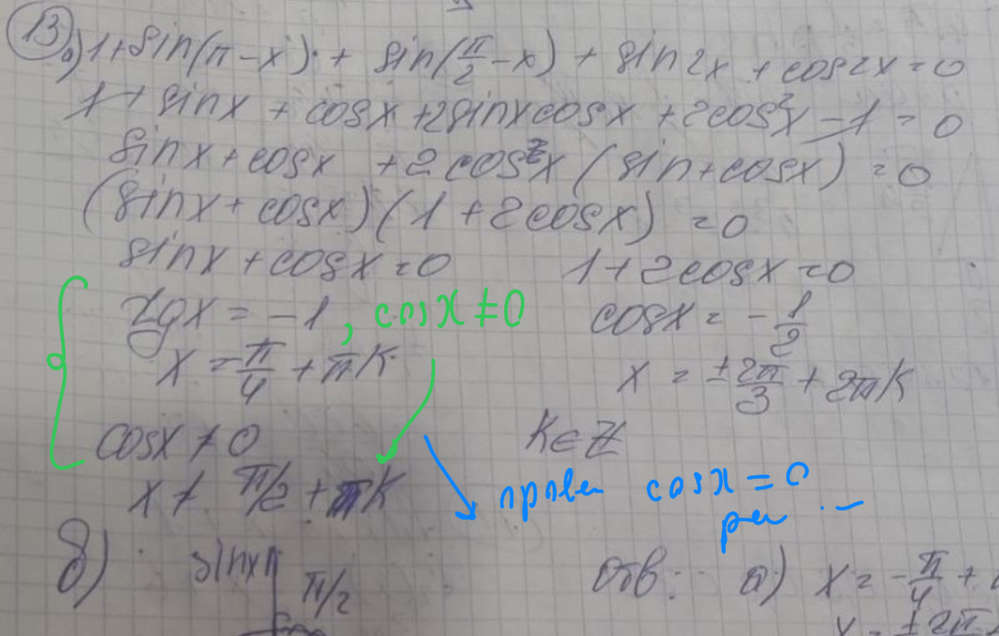 13
а) 1 + sin(π − x) + sin(π/2 − x) + sin 2x + cos 2x = 0
1 + sin x + cos x + 2 sin x cos x + 2 cos² x − 1 = 0
sin x + cos x + 2 cos x (sin + cos x) = 0
(sin x + cos x)(1 + 2 cos x) = 0
sin x + cos x = 0 1 + 2 cos x = 0
tg x = −1, cos x ≠ 0 cos x = −1/2
x = −π/4 + πk x = ±2π/3 + 2πk
cos x ≠ 0 k ∈ Z
x ≠ π/2 + πk провер cos x = 0
реш
б) sin x π/2 Отв: а) x = −π/4 +
±2π